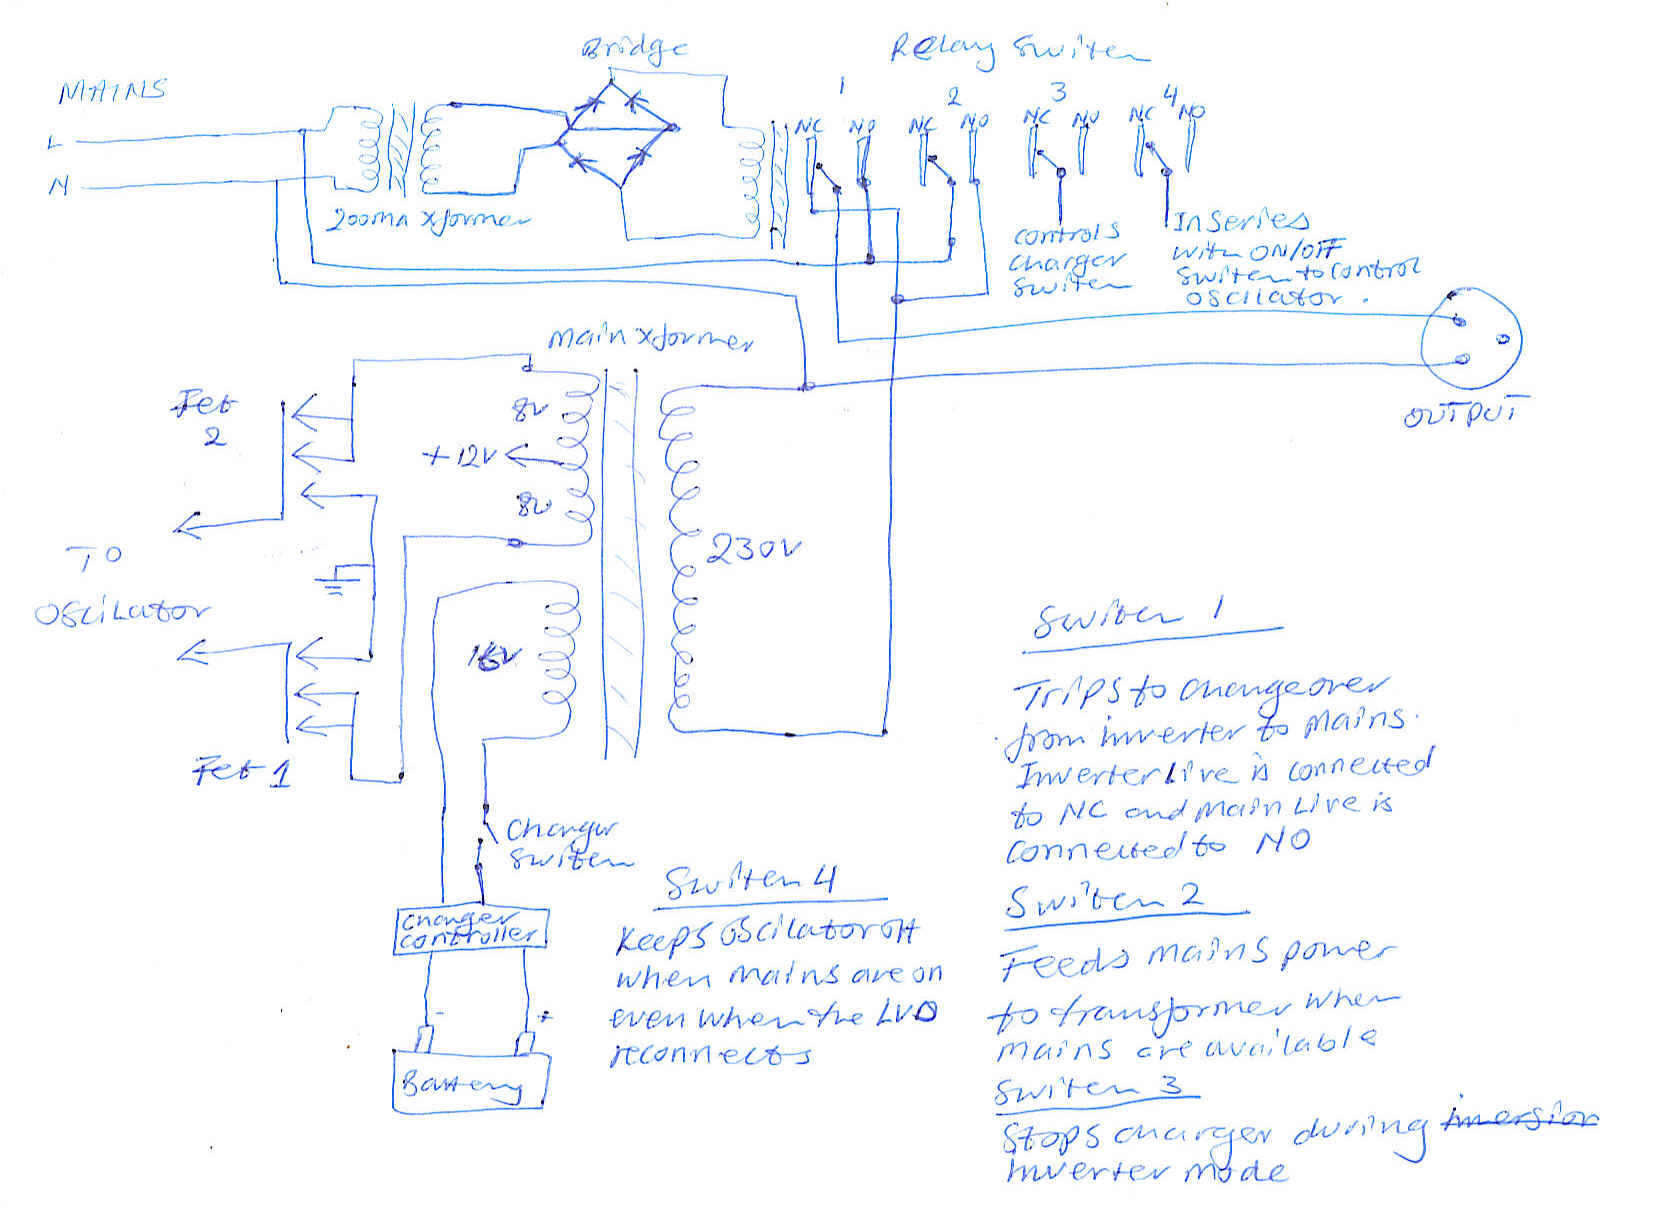 Bridge
Relay Switch
MAINS
L
N
200mA xformer
1
2
3
4
NC NO
NC NO
NC NO
NC NO
controls
charger
switch
In Series
with ON/OFF
Switch to control
oscilator.
Main xformer
OUTPUT
Fet
2
8v
+12v
8v
TO
OSCILator
230v
16v
Fet 1
Charger
Switch
Charger
controller
- +
Battery
Switch 4
Keeps Oscilator off
when mains are on
even when the LVD
reconnects
Switch 1
Trips to changeover
from inverter to mains.
Inverter Live is connected
to NC and main Live is
connected to NO
Switch 2
Feeds mains power
to transformer when
mains are available
Switch 3
Stops charger during
Inverter mode